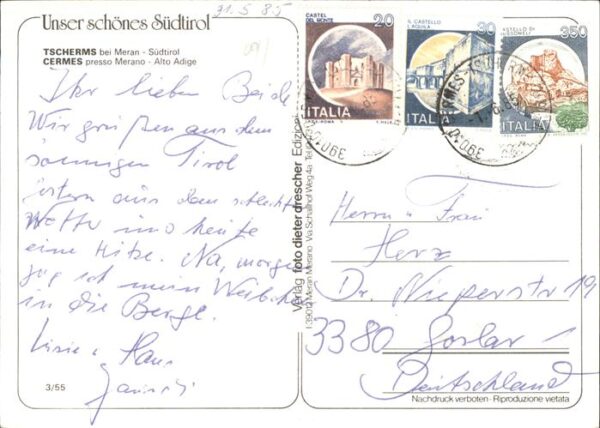 Unser schönes Südtirol
31.5.85
TSCHERMS bei Meran - Südtirol
CERMES presso Merano - Alto Adige
Ihr lieben Beide
Wir grüßen aus dem
sonnigen Tirol
gestern aus dem schlecht
Wetter und heute
eine Hitze. Na, morgen
mein
in die Berge.
Hans
3/55
Verlag foto dieter drescher Edizioni
I 39012 Meran Merano Via Schaffnof Weg 4a
20
CASTEL
DEL MONTE
ITALIA
30
IL CASTELLO
L'AQUILA
ITALIA
350
CASTELLO DI
MUSSOMELI
ITALIA
39010
39010
CERMES
Herrn u. Frau
Herz
Dr. Nieperstr 19
3380 Goslar
Deutschland
Nachdruck verboten - Riproduzione vietata